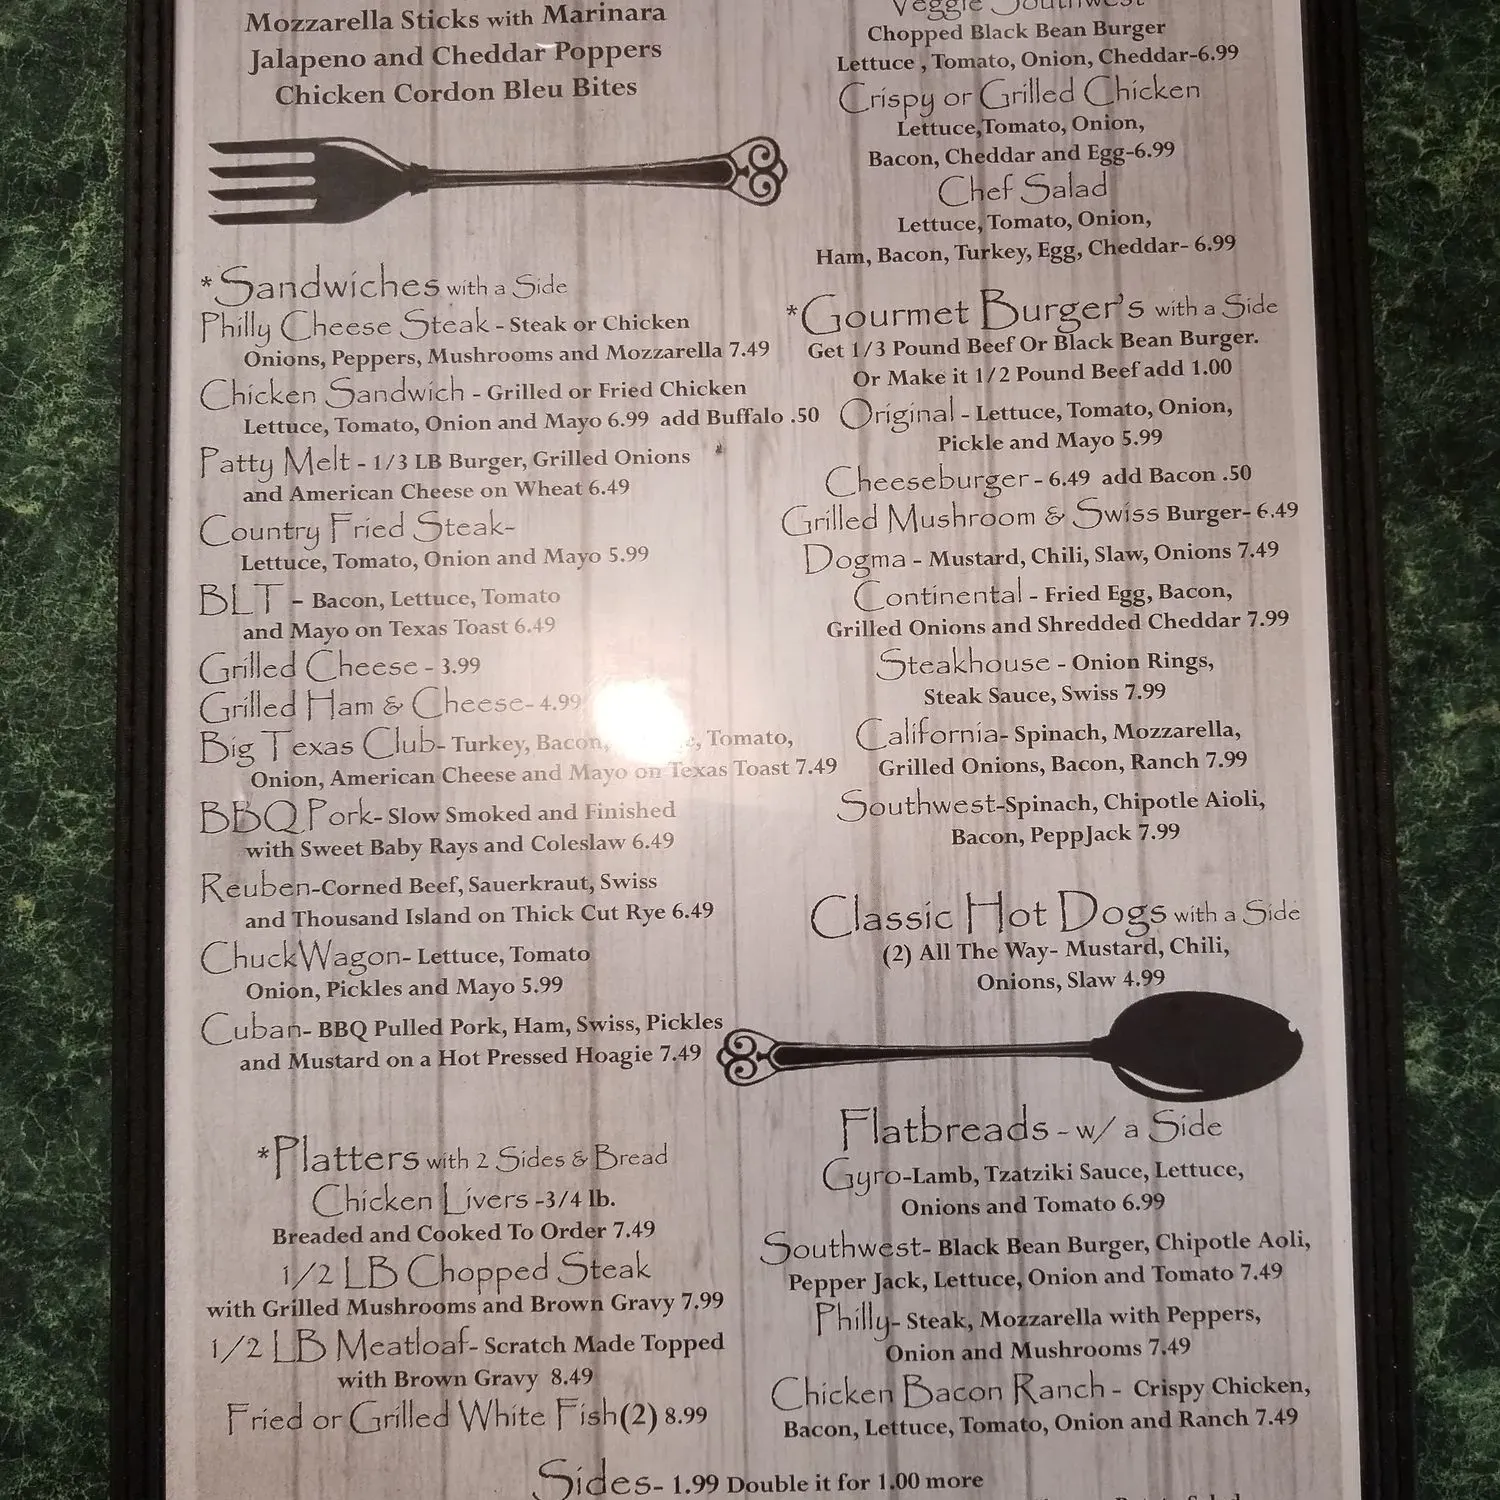 Mozzarella Sticks with Marinara
Jalapeno and Cheddar Poppers
Chicken Cordon Bleu Bites
*Sandwiches with a Side
Philly Cheese Steak - Steak or Chicken
Onions, Peppers, Mushrooms and Mozzarella 7.49
Chicken Sandwich - Grilled or Fried Chicken
Lettuce, Tomato, Onion and Mayo 6.99 add Buffalo .50
Patty Melt - 1/3 LB Burger, Grilled Onions
and American Cheese on Wheat 6.49
Country Fried Steak-
Lettuce, Tomato, Onion and Mayo 5.99
BLT - Bacon, Lettuce, Tomato
and Mayo on Texas Toast 6.49
Grilled Cheese - 3.99
Grilled Ham & Cheese- 4.99
Big Texas Club- Turkey, Bacon, Tomato,
Onion, American Cheese and Mayo on Texas Toast 7.49
BBQ Pork- Slow Smoked and Finished
with Sweet Baby Rays and Coleslaw 6.49
Reuben-Corned Beef, Sauerkraut, Swiss
and Thousand Island on Thick Cut Rye 6.49
ChuckWagon- Lettuce, Tomato
Onion, Pickles and Mayo 5.99
Cuban- BBQ Pulled Pork, Ham, Swiss, Pickles
and Mustard on a Hot Pressed Hoagie 7.49
*Platters with 2 Sides & Bread
Chicken Livers -3/4 lb.
Breaded and Cooked To Order 7.49
1/2 LB Chopped Steak
with Grilled Mushrooms and Brown Gravy 7.99
1/2 LB Meatloaf- Scratch Made Topped
with Brown Gravy 8.49
Fried or Grilled White Fish(2) 8.99
Veggie Southwest
Chopped Black Bean Burger
Lettuce , Tomato, Onion, Cheddar-6.99
Crispy or Grilled Chicken
Lettuce,Tomato, Onion,
Bacon, Cheddar and Egg-6.99
Chef Salad
Lettuce, Tomato, Onion,
Ham, Bacon, Turkey, Egg, Cheddar- 6.99
*Gourmet Burger's with a Side
Get 1/3 Pound Beef Or Black Bean Burger.
Or Make it 1/2 Pound Beef add 1.00
Original - Lettuce, Tomato, Onion,
Pickle and Mayo 5.99
Cheeseburger - 6.49 add Bacon .50
Grilled Mushroom & Swiss Burger- 6.49
Dogma - Mustard, Chili, Slaw, Onions 7.49
Continental - Fried Egg, Bacon,
Grilled Onions and Shredded Cheddar 7.99
Steakhouse - Onion Rings,
Steak Sauce, Swiss 7.99
California- Spinach, Mozzarella,
Grilled Onions, Bacon, Ranch 7.99
Southwest-Spinach, Chipotle Aioli,
Bacon, PeppJack 7.99
Classic Hot Dogs with a Side
(2) All The Way- Mustard, Chili,
Onions, Slaw 4.99
Flatbreads - w/ a Side
Gyro-Lamb, Tzatziki Sauce, Lettuce,
Onions and Tomato 6.99
Southwest- Black Bean Burger, Chipotle Aoli,
Pepper Jack, Lettuce, Onion and Tomato 7.49
Philly- Steak, Mozzarella with Peppers,
Onion and Mushrooms 7.49
Chicken Bacon Ranch - Crispy Chicken,
Bacon, Lettuce, Tomato, Onion and Ranch 7.49
Sides- 1.99 Double it for 1.00 more